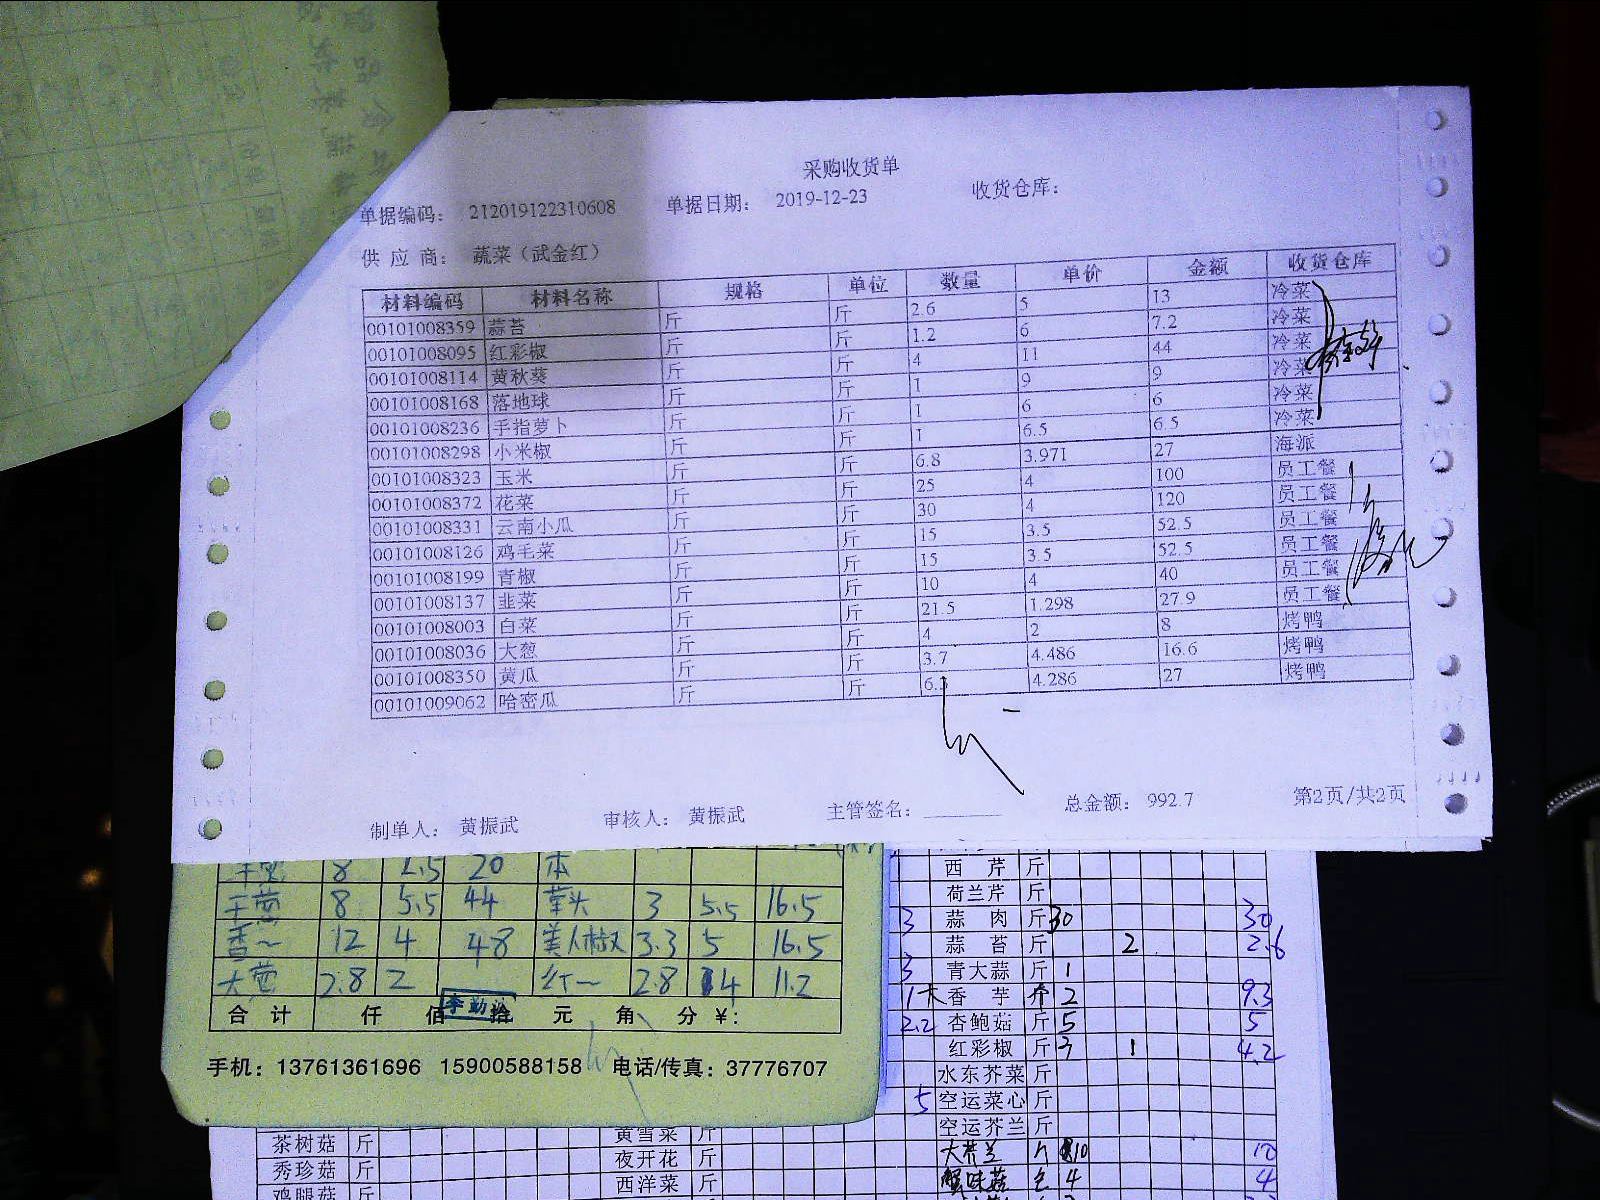 采购收货单
单据编码： 212019122310608 单据日期： 2019-12-23 收货仓库：
供 应 商： 蔬菜（武金红）
材料编码 材料名称 规格 单位 数量 单价 金额 收货仓库
00101008359 蒜苔 斤 斤 2.6 5 13 冷菜
00101008095 红彩椒 斤 斤 1.2 6 7.2 冷菜
00101008114 黄秋葵 斤 斤 4 11 44 冷菜
00101008168 落地球 斤 斤 1 9 9 冷菜
00101008236 手指萝卜 斤 斤 1 6 6 冷菜
00101008298 小米椒 斤 斤 1 6.5 6.5 冷菜
00101008323 玉米 斤 斤 6.8 3.971 27 海派
00101008372 花菜 斤 斤 25 4 100 员工餐
00101008331 云南小瓜 斤 斤 30 4 120 员工餐
00101008126 鸡毛菜 斤 斤 15 3.5 52.5 员工餐
00101008199 青椒 斤 斤 15 3.5 52.5 员工餐
00101008137 韭菜 斤 斤 10 4 40 员工餐
00101008003 白菜 斤 斤 21.5 1.298 27.9 员工餐
00101008036 大葱 斤 斤 4 2 8 烤鸭
00101008350 黄瓜 斤 斤 3.7 4.486 16.6 烤鸭
00101009062 哈密瓜 斤 斤 6.3 4.286 27 烤鸭
制单人： 黄振武 审核人： 黄振武 主管签名： 总金额： 992.7 第2页/共2页
8 2.5 20 本
干葱 8 5.5 44 3 5.5 16.5
香〜 12 4 48 美人椒 3.3 5 16.5
大葱 2.8 2 红〜 2.8 4 11.2
合 计 仟 佰 拾 元 角 分 ¥:
李勤
手机：13761361696 15900588158 电话/传真：37776707
西 芹 斤
荷兰芹 斤
3 蒜 肉 斤 30 30
蒜 苔 斤 2 2.6
3 青大蒜 斤 1
香 芋 斤 2 9.3
2.2 杏鲍菇 斤 5 5
红彩椒 斤 3 1 4.2
水东芥菜 斤
5 空运菜心 斤
空运芥兰 斤
大芥兰 斤 10 10
蟹味菇 4 4
茶树菇 斤 黄雪菜 斤
秀珍菇 斤 夜开花 斤
鸡腿菇 斤 西洋菜 斤